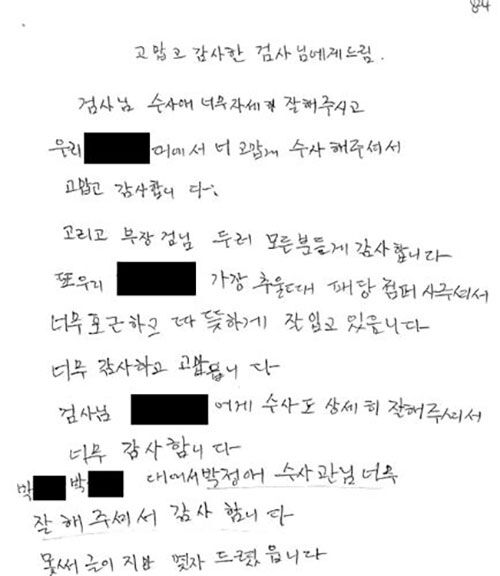 84
고맙고 감사한 검사님에게드림.
검사님 수사에 너무자세히 잘해주시고
우리 에서 너 고맙게 수사해주셔서
고맙고 감사합니다.
고리고 부장검님 두러 모든분들게 감사합니다
또우리 가장 추울때 패당 점퍼 사주셔서
너무 포근하고 따뜻하게 잘입고 있읍니다
너무 감사하고 고맙읍니다
검사님 어게 수사도 상세히 잘해주셔서
너무 감사합니다
박 박 대에서박정애 수사관님너무
잘해주셔서 감사합니다
못써 글이지만 몇자 드렸읍니다